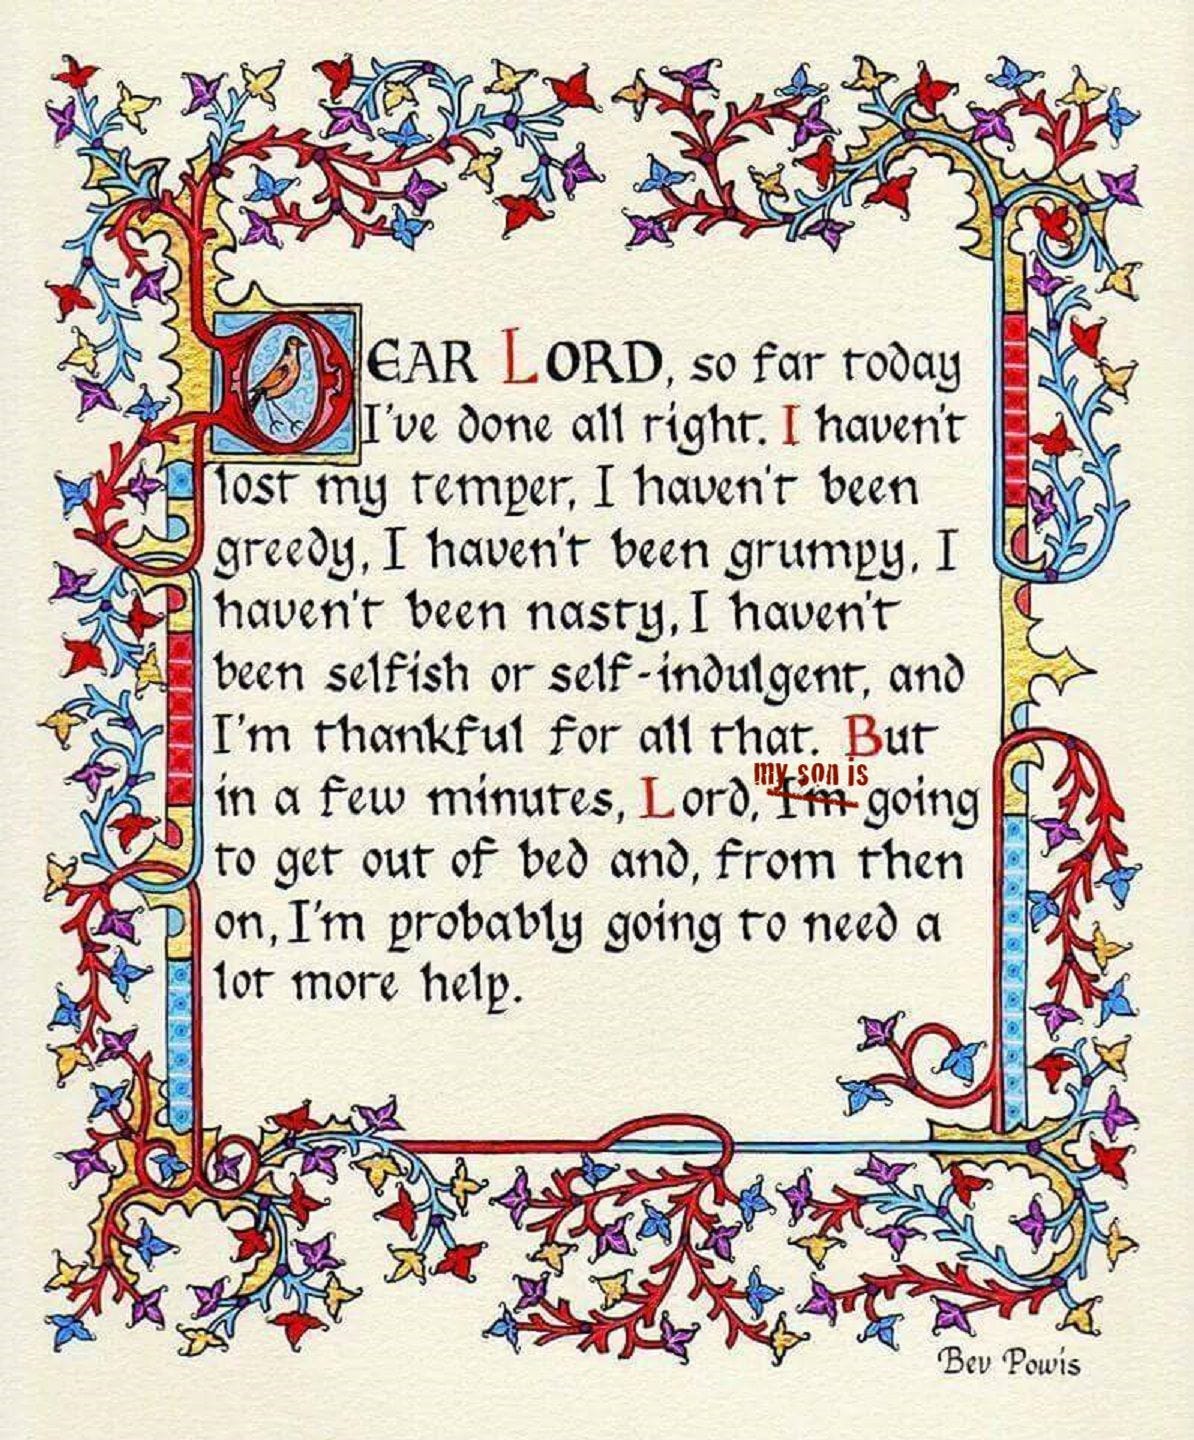 DEAR LORD, so far today
I've done all right. I haven't
lost my temper, I haven't been
greedy, I haven't been grumpy, I
haven't been nasty, I haven't
been selfish or self-indulgent, and
I'm thankful for all that. But
my son is
in a few minutes, Lord, I'm going
to get out of bed and, from then
on, I'm probably going to need a
lot more help.
Bev Powis